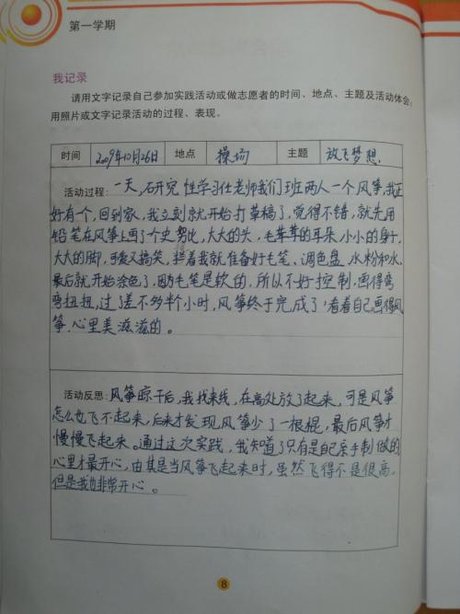 第一学期
我记录
请用文字记录自己参加实践活动或做志愿者的时间、地点、主题及活动体会,
用照片或文字记录活动的过程、表现。
时间 2009年10月26日 地点 操场 主题 放飞梦想
活动过程:一天,研究性学习任老师我们班两人一个风筝,我正
好有个,回到家,我立刻就开始打草稿了,觉得不错,就先用
铅笔在风筝上画了个史努比,大大的头,毛茸茸的耳朵,小小的身子,
大大的脚,可爱又搞笑,接着我就准备好毛笔、调色盘、水粉和水,
最后就开始涂色了,因为毛笔是软的,所以不好控制,画得弯
弯扭扭,过了差不多半个小时,风筝终于完成了,看着自己画得风
筝,心里美滋滋的。
活动反思:风筝晾干后,我找来线,在高处放了起来,可是风筝
怎么也飞不起来,后来才发现风筝少了一根棍,最后风筝才
慢慢飞起来。通过这次实践,我知道了只有是自己亲手制做的
心里才最开心,由其是当风筝飞起来时,虽然飞得不是很高,
但是我也非常开心。
8